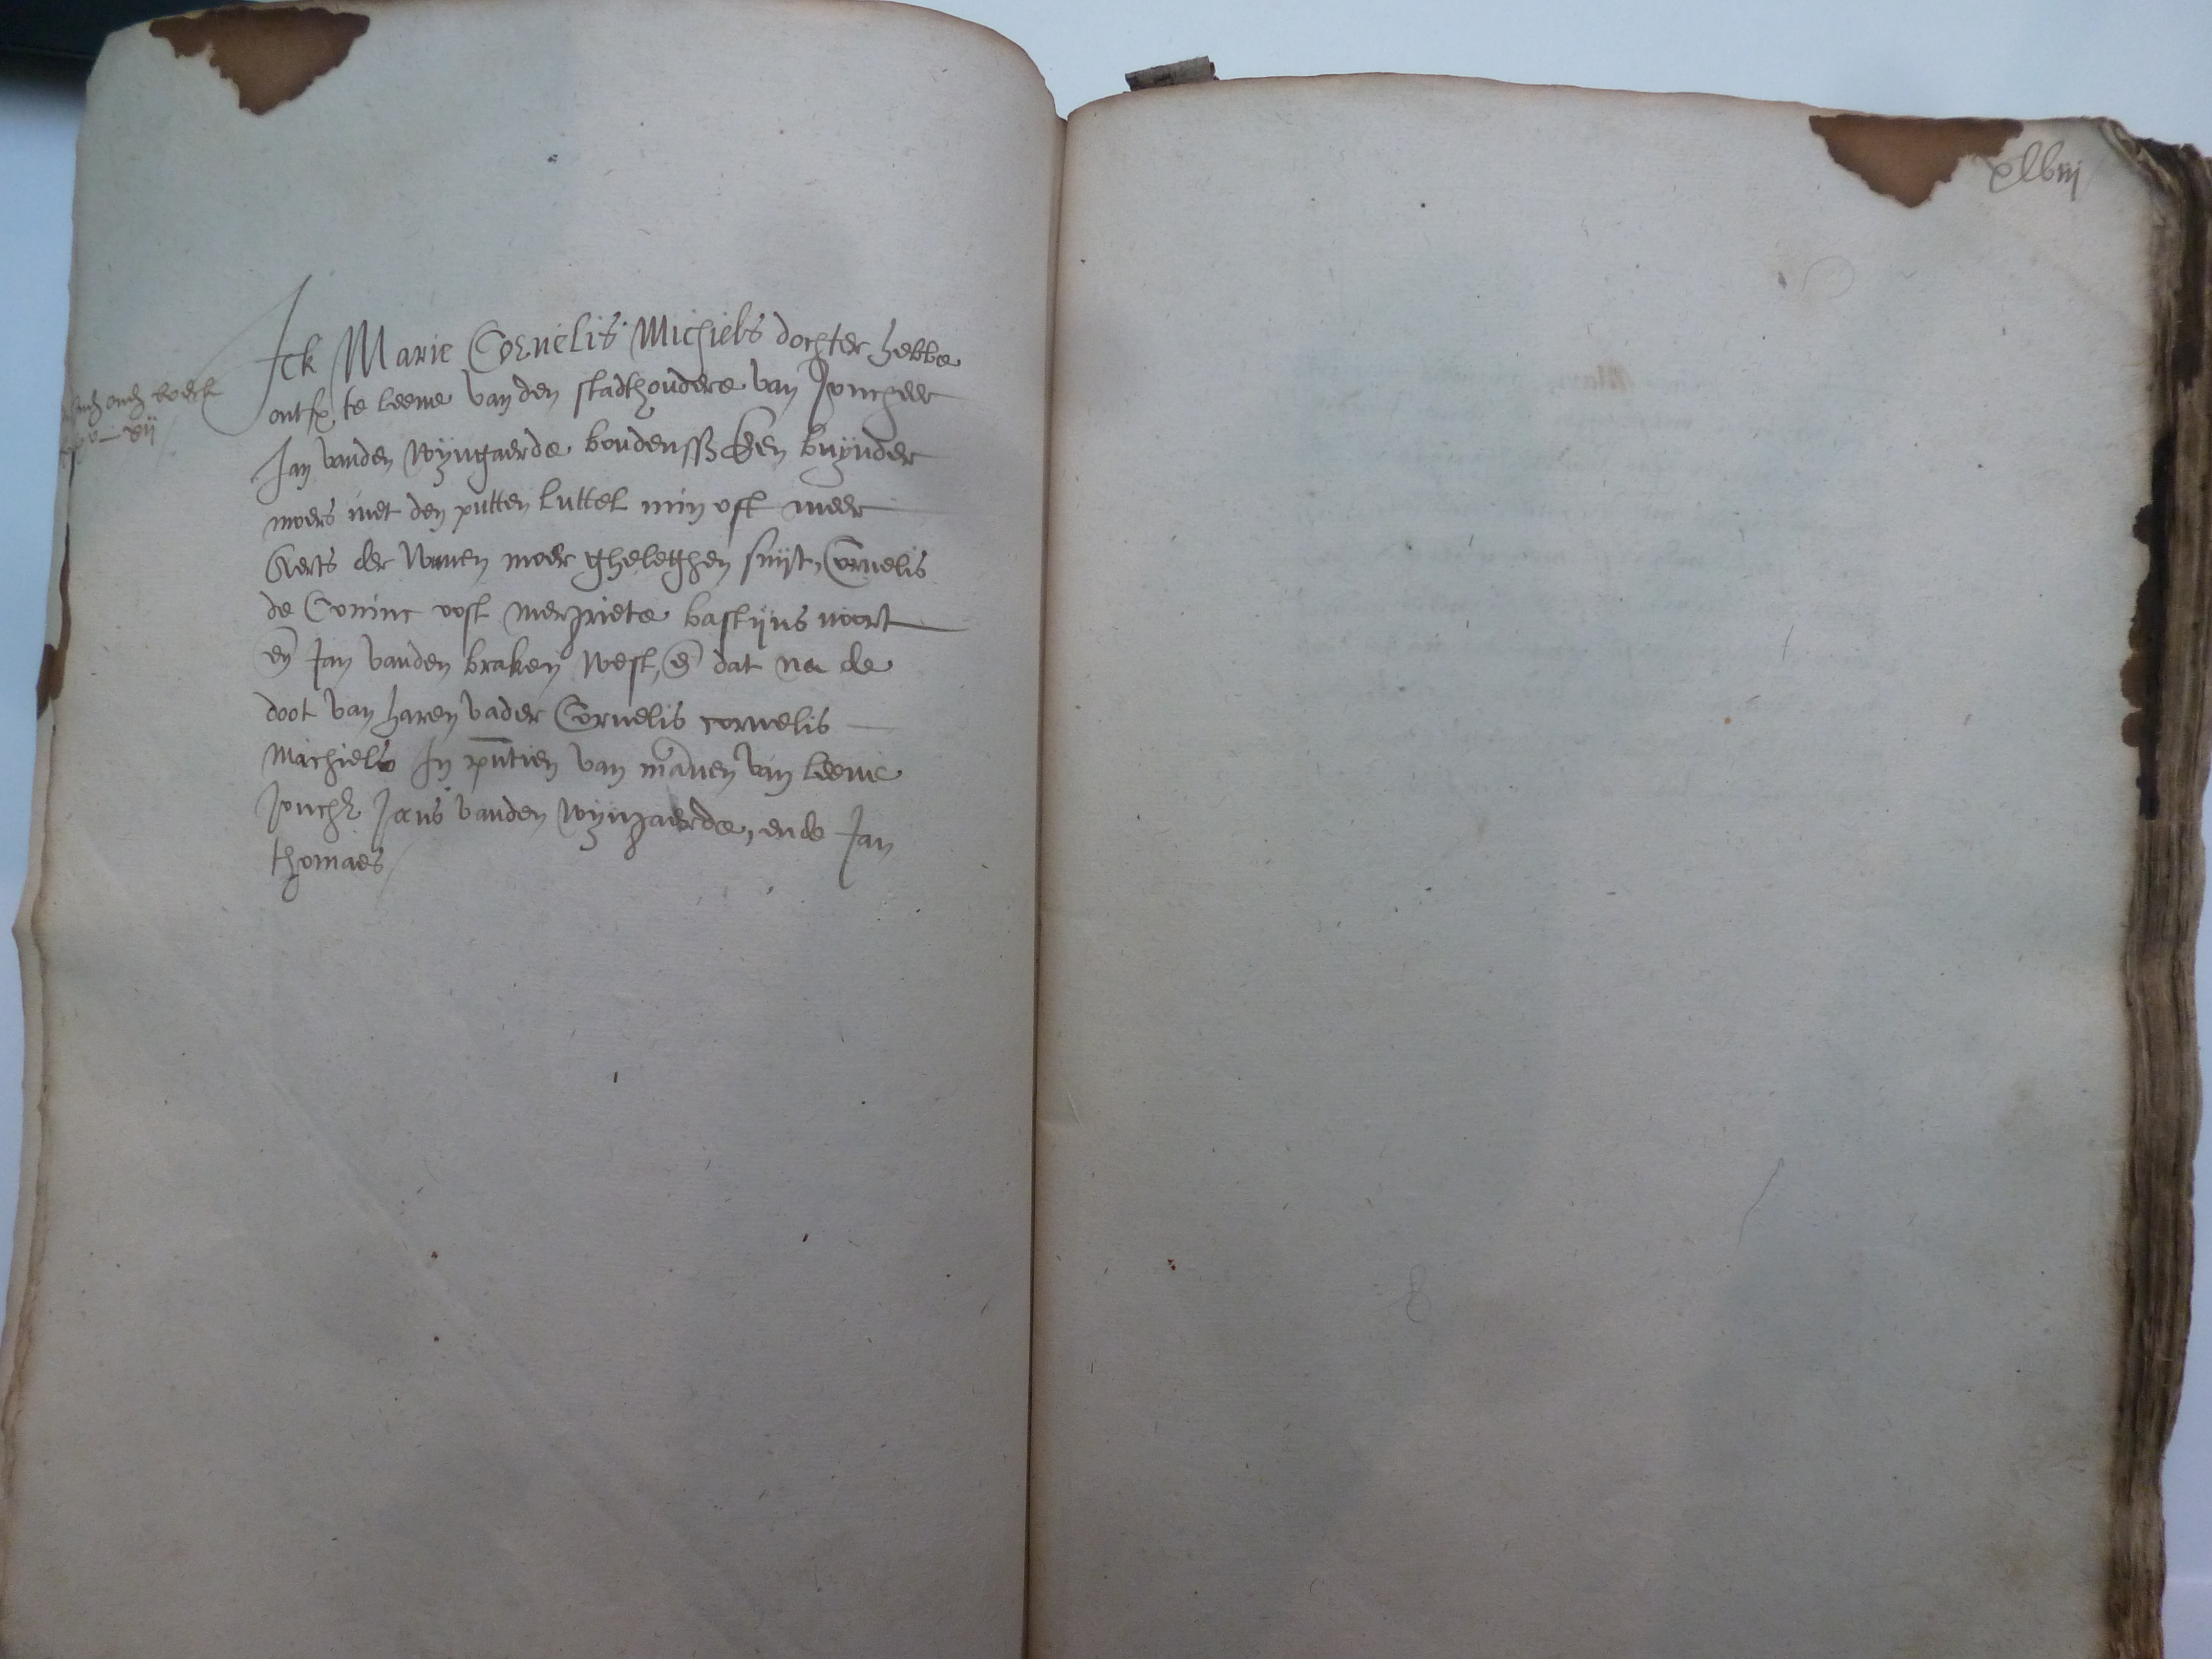 Ick Marie Cornelis Michiels dochter hebbe
ontf te leene van den stadthoudere van Joncheer
Jan vanden Wijngaerde boudenss Een buijnder
moers met den putten luttel min oft meer
Aerts der moer gheleghen suijt, Cornelis
de Coninc oost mergriete bastijns noort
en Jan vanden braken West, en dat na de
doot van haren vader Cornelis cornelis
Machiels In pntien van mannen van leene
Jonch Jans vanden Wijngaerde, ende Jan
thomaes
oudt boeck
xlviij